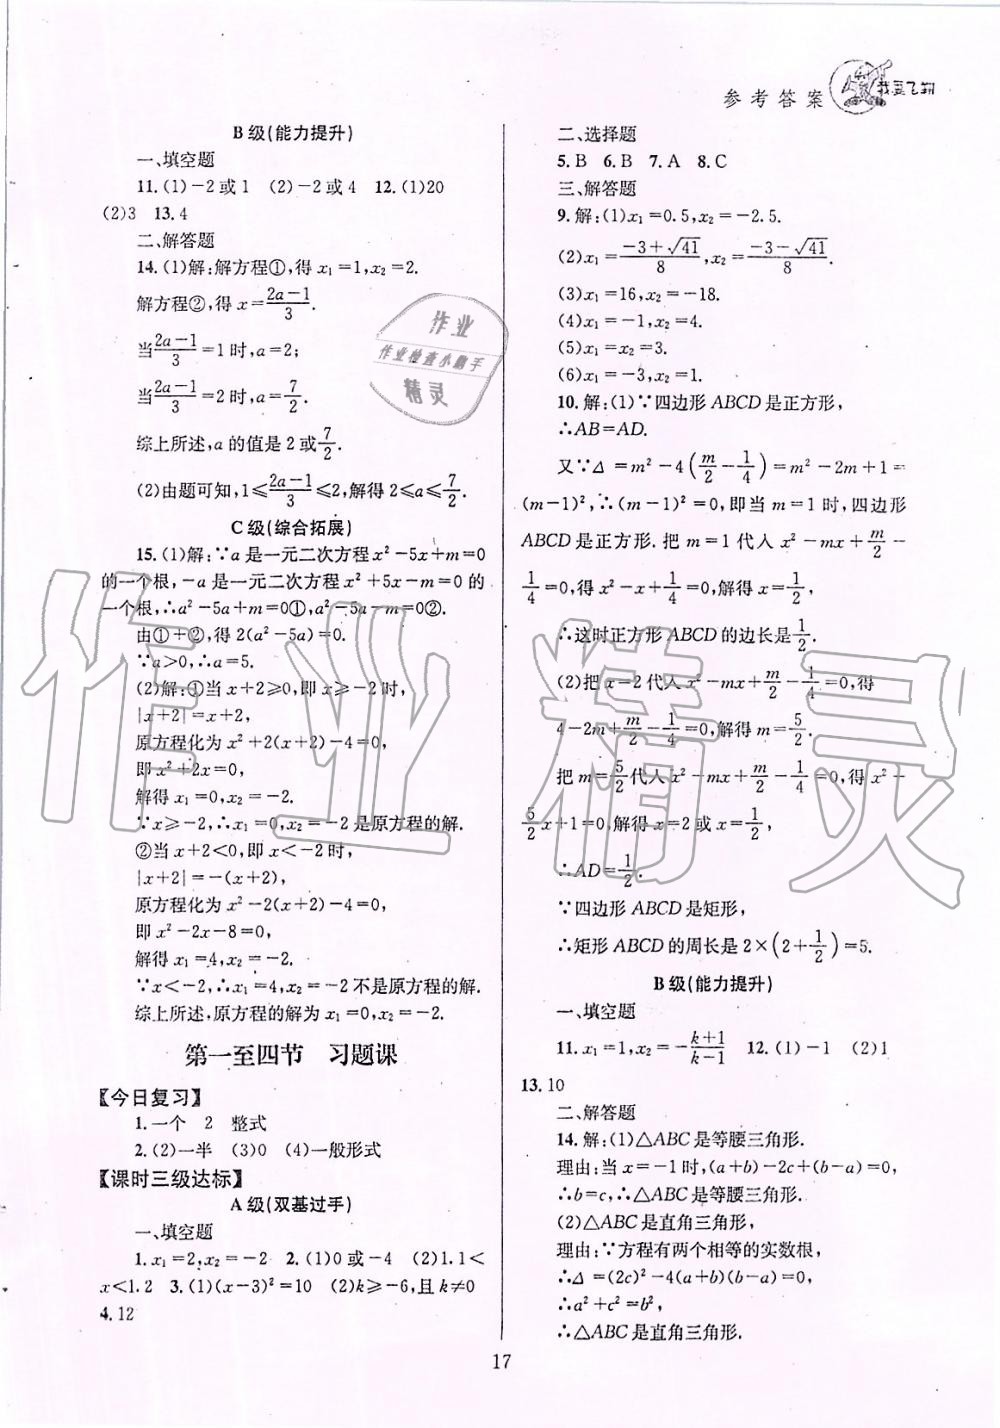 参考答案
我要飞翔
B级(能力提升)
一、填空题
11.(1)-2或1 (2)-2或4 12.(1)20
(2)3 13.4
二、解答题
14.(1)解:解方程①,得 x₁=1,x₂=2.
解方程②,得 x=(2a-1)/3.
当(2a-1)/3=1时,a=2;
当(2a-1)/3=2时,a=7/2.
综上所述,a 的值是2或7/2.
(2)由题可知,1≤(2a-1)/3≤2,解得 2≤a≤7/2.
C级(综合拓展)
15.(1)解:∵a 是一元二次方程 x²-5x+m=0
的一个根,-a 是一元二次方程 x²+5x-m=0 的
一个根,∴a²-5a+m=0①,a²-5a-m=0②.
由①+②,得 2(a²-5a)=0.
∵a>0,∴a=5.
(2)解:①当 x+2≥0,即 x≥-2时,
|x+2|=x+2,
原方程化为 x²+2(x+2)-4=0,
即 x²+2x=0,
解得 x₁=0,x₂=-2.
∵x≥-2,∴x₁=0,x₂=-2是原方程的解.
②当 x+2<0,即 x<-2时,
|x+2|=-(x+2),
原方程化为 x²-2(x+2)-4=0,
即 x²-2x-8=0,
解得 x₁=4,x₂=-2.
∵x<-2,∴x₁=4,x₂=-2不是原方程的解.
综上所述,原方程的解为 x₁=0,x₂=-2.
第一至四节 习题课
【今日复习】
1.一个 2 整式
2.(2)一半 (3)0 (4)一般形式
【课时三级达标】
A级(双基过手)
一、填空题
1.x₁=2,x₂=-2 2.(1)0或-4 (2)1.1<
x<1.2 3.(1)(x-3)²=10 (2)k≥-6,且 k≠0
4.12
二、选择题
5.B 6.B 7.A 8.C
三、解答题
9.解:(1)x₁=0.5,x₂=-2.5.
(2)x₁=(-3+√41)/8,x₂=(-3-√41)/8.
(3)x₁=16,x₂=-18.
(4)x₁=-1,x₂=4.
(5)x₁=x₂=3.
(6)x₁=-3,x₂=1.
10.解:(1)∵四边形 ABCD 是正方形,
∴AB=AD.
又∵Δ=m²-4(m/2-1/4)=m²-2m+1=
(m-1)²,∴(m-1)²=0,即当 m=1 时,四边形
ABCD 是正方形.把 m=1 代入 x²-mx+m/2-
1/4=0,得 x²-x+1/4=0,解得 x=1/2,
∴这时正方形 ABCD 的边长是1/2.
(2)把 x=2代入 x²-mx+m/2-1/4=0,得
4-2m+m/2-1/4=0,解得 m=5/2.
把 m=5/2代入 x²-mx+m/2-1/4=0,得 x²-
5/2x+1=0,解得 x=2或 x=1/2,
∴AD=1/2.
∵四边形 ABCD 是矩形,
∴矩形 ABCD 的周长是 2×(2+1/2)=5.
B级(能力提升)
一、填空题
11.x₁=1,x₂=-(k+1)/(k-1) 12.(1)-1 (2)1
13.10
二、解答题
14.解:(1)△ABC 是等腰三角形.
理由:当 x=-1时,(a+b)-2c+(b-a)=0,
∴b=c,∴△ABC 是等腰三角形.
(2)△ABC 是直角三角形,
理由:∵方程有两个相等的实数根,
∴Δ=(2c)²-4(a+b)(b-a)=0,
∴a²+c²=b²,
∴△ABC 是直角三角形.
17
作业
作业检查小助手
精灵
作业精灵